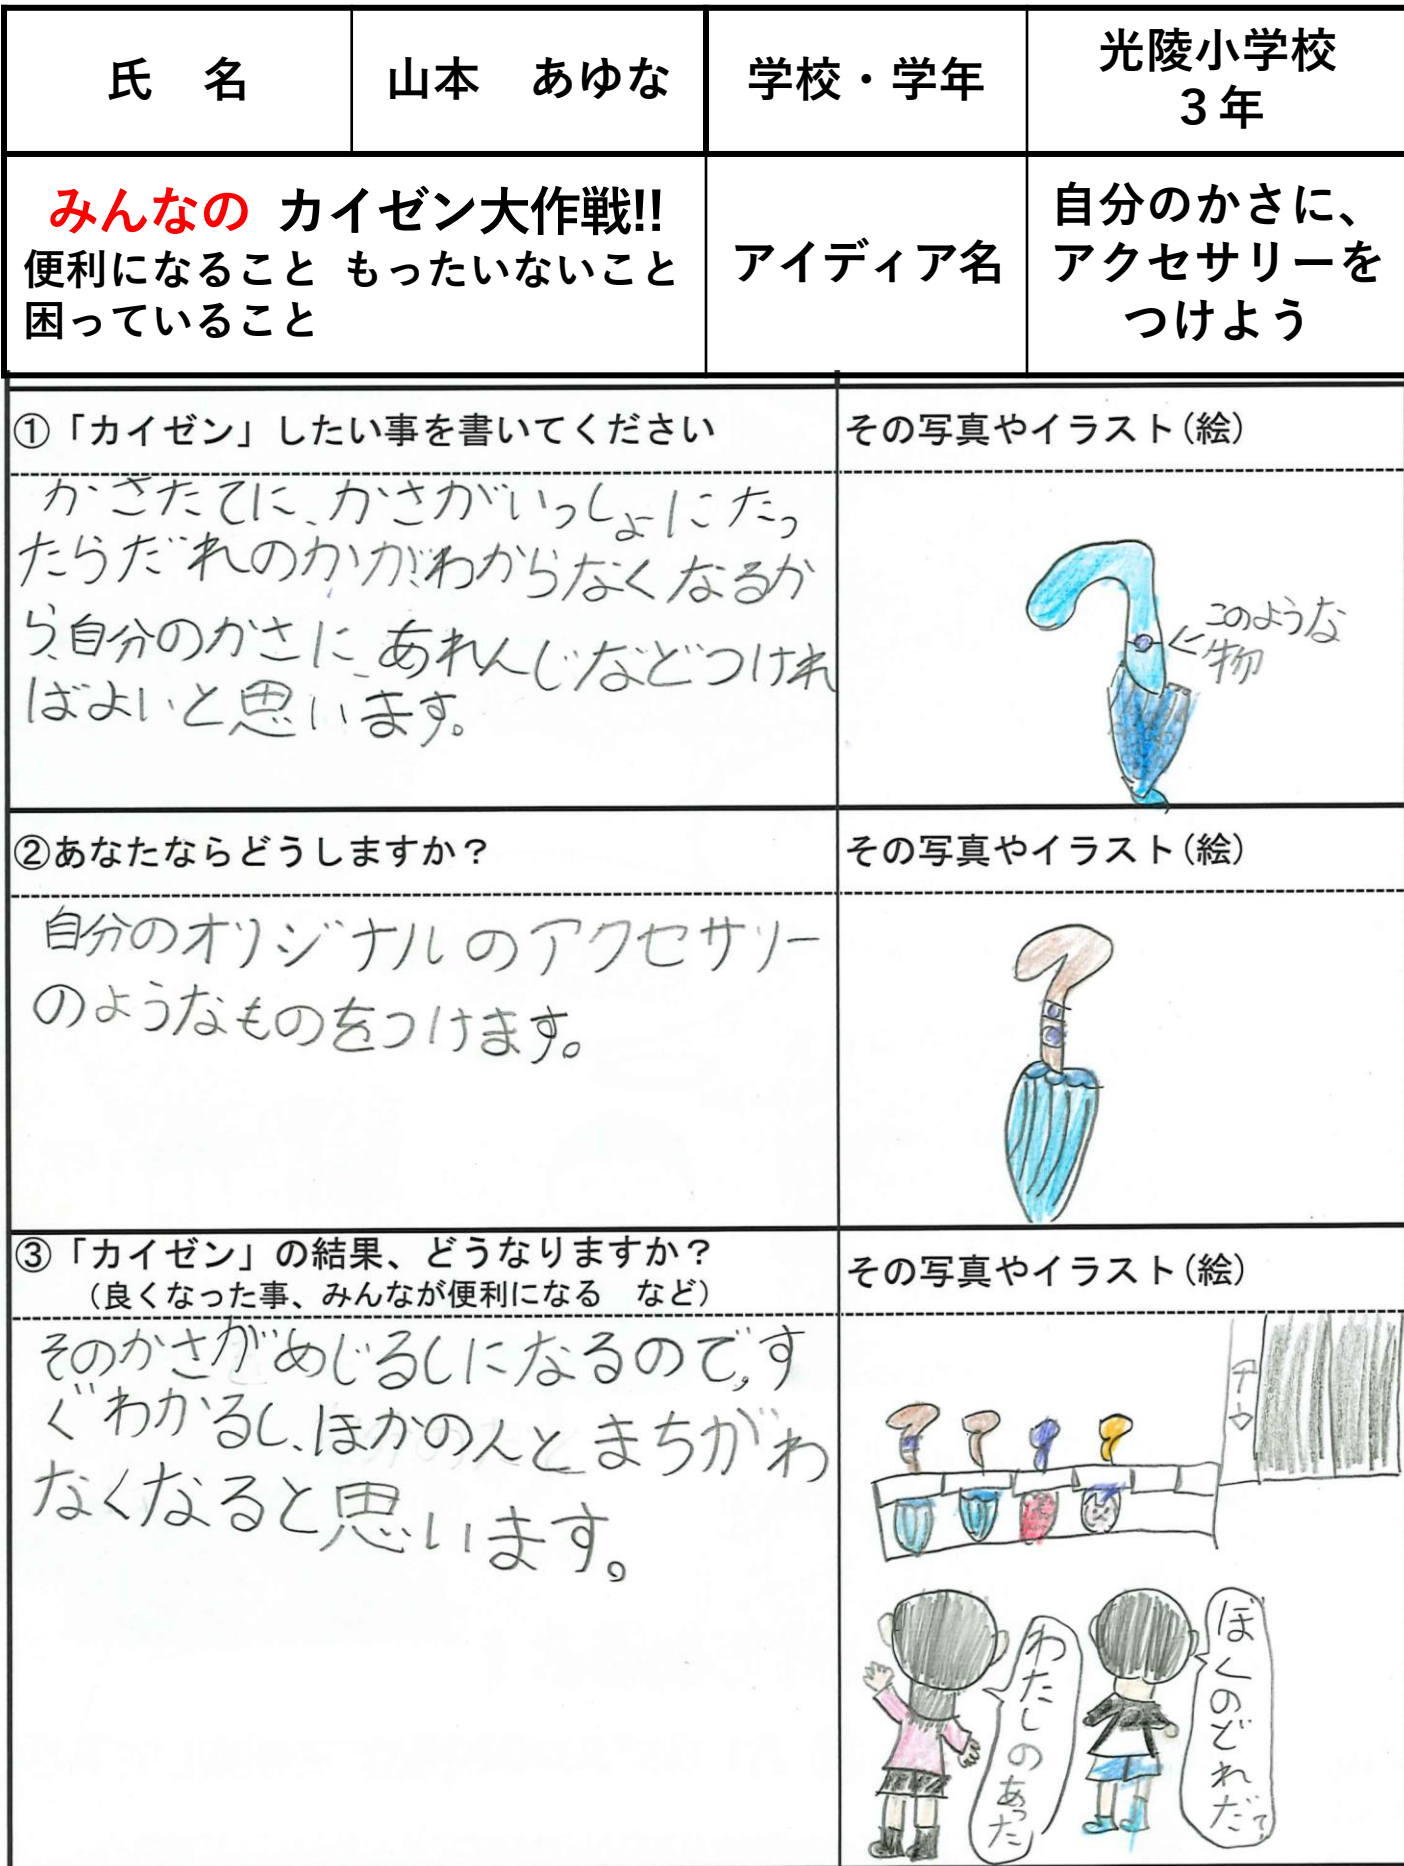 氏　名
山本　あゆな
学校・学年
光陵小学校
３年
みんなの カイゼン大作戦!!
便利になること もったいないこと
困っていること
アイディア名
自分のかさに、
アクセサリーを
つけよう
①「カイゼン」したい事を書いてください
その写真やイラスト(絵)
かさたてに、かさがいっしょにたっ
たらだれのかが、わからなくなるか
ら、自分のかさに、あれんじなどつけれ
ばよいと思います。
このような
物
②あなたならどうしますか？
その写真やイラスト(絵)
自分のオリジナルのアクセサリー
のようなものをつけます。
③「カイゼン」の結果、どうなりますか？
（良くなった事、みんなが便利になる　など）
その写真やイラスト(絵)
そのかさがめじるしになるので、す
ぐわかるし、ほかの人とまちがわ
なくなると思います。
わたしのあった
ぼくのどれだ？